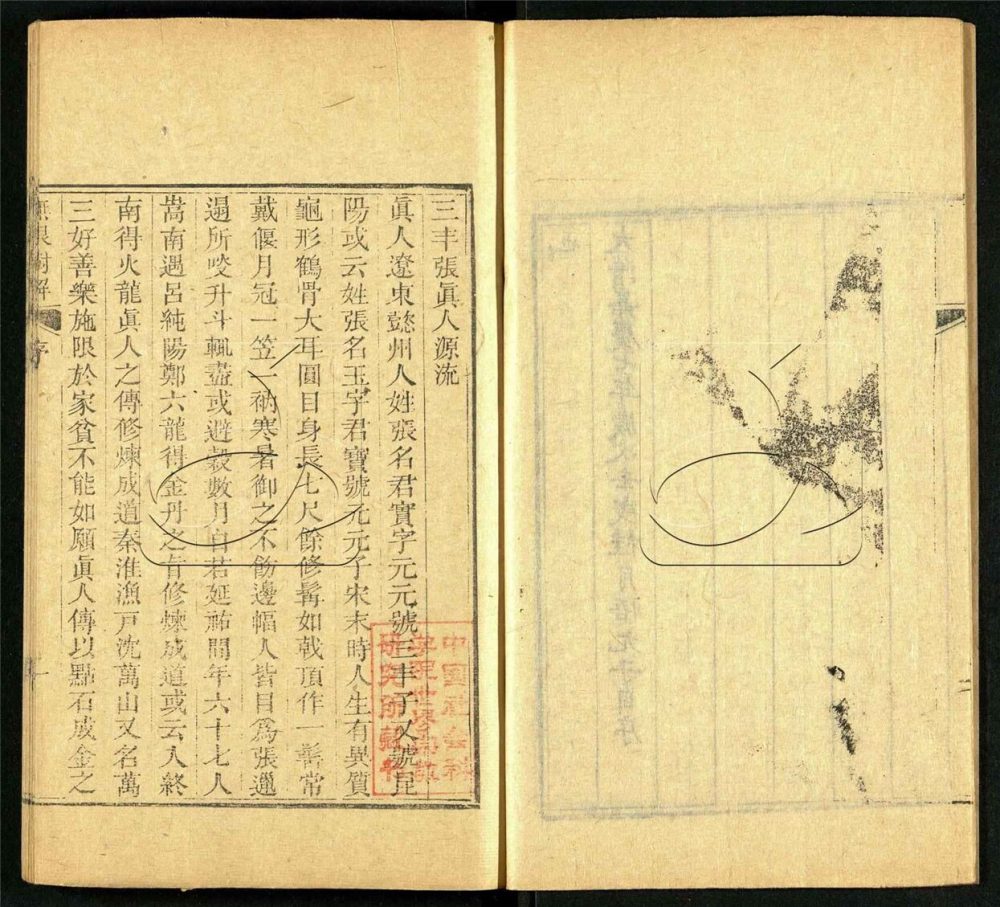 三丰張眞人源流
眞人遼東懿州人姓張名君實字元元號三丰子又號昆
陽或云姓張名玉字君寶號元元子宋末時人生有異質
龜形鶴骨大耳圓目身長七尺餘修髯如戟頂作一髻常
戴偃月冠一笠一衲寒暑御之不飭邊幅人皆目爲張邋
遢所啖升斗輒盡或避穀數月自若延祐間年六十七入
嵩南遇呂純陽鄭六龍得金丹之旨修煉成道或云入終
南得火龍眞人之傳修煉成道秦淮漁戸沈萬山又名萬
三好善樂施限於家貧不能如願眞人傳以點石成金之
無根樹解 序 一
中國社會科
學院世界宗教
研究所藏書